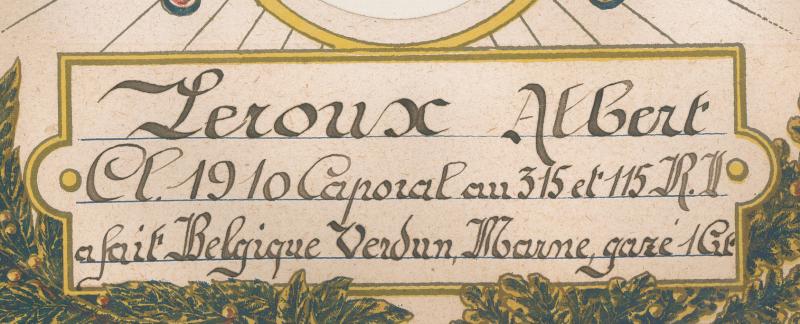 Leroux Albert
Cl. 1910 Caporal au 315 et 115 R.I
a fait Belgique Verdun, Marne, gazé 1 Cit